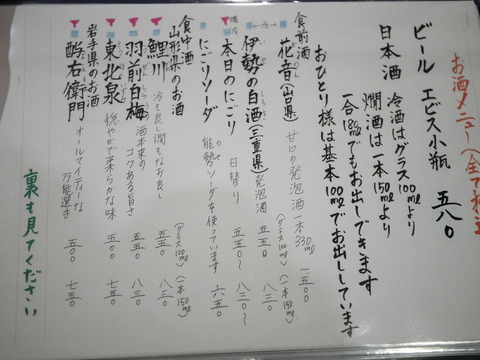 お酒メニュー（全て税
ビール　エビス小瓶　五八〇
日本酒　冷酒はグラス100mlより
燗酒は一本150mlより
一合180mlでもお出しできます
おひとり様は基本100mlでお出ししています
食前酒
花音（山口県）　甘口の発泡酒一本330ml　一五〇〇
（グラス100ml）（一本150ml）
伊勢の白酒（三重県）発泡酒　五五〇　八三〇
本日のにごり　日替り　五五〇〜　八三〇〜
にごりソーダ　能勢ソーダを使っています　六五〇
食中酒
山形県のお酒　（グラス100ml）（一本150ml）
鯉川　冷も良し燗もなお良し　五五〇　八三〇
羽前白梅　酒本来のコクある旨さ　五五〇　八三〇
東北泉　穏やかで柔らかな味　五〇〇　七五〇
岩手県のお酒
酉与右衛門　オールマイティーな万能選手　五〇〇　七五〇
裏も見てください